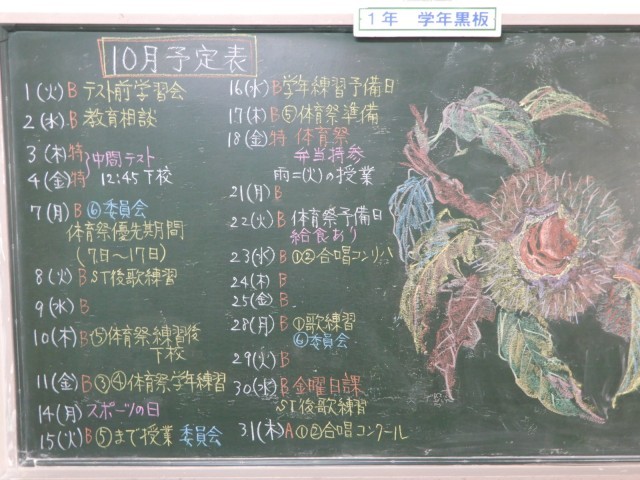 1年 学年黒板
10月予定表
1(火)B テスト前学習会
2(水)B 教育相談
3(木)特
4(金)特
中間テスト
12:45下校
7(月)B ⑥委員会
体育祭優先期間
(7日~17日)
8(火)B ST後歌練習
9(水)B
10(木)B ⑤体育祭練習後
下校
11(金)B ③④体育祭学年練習
14(月)スポーツの日
15(火)B ⑤まで授業 委員会
16(水)B 学年練習予備日
17(木)B ⑤体育祭準備
18(金)特 体育祭
弁当持参
雨=(火)の授業
21(月)B
22(火)B 体育祭予備日
給食あり
23(水)B ①②合唱コンリハ
24(木)B
25(金)B
28(月)B ①歌練習
⑥委員会
29(火)B
30(水)B 金曜日課
ST後歌練習
31(木)A ①②合唱コンクール